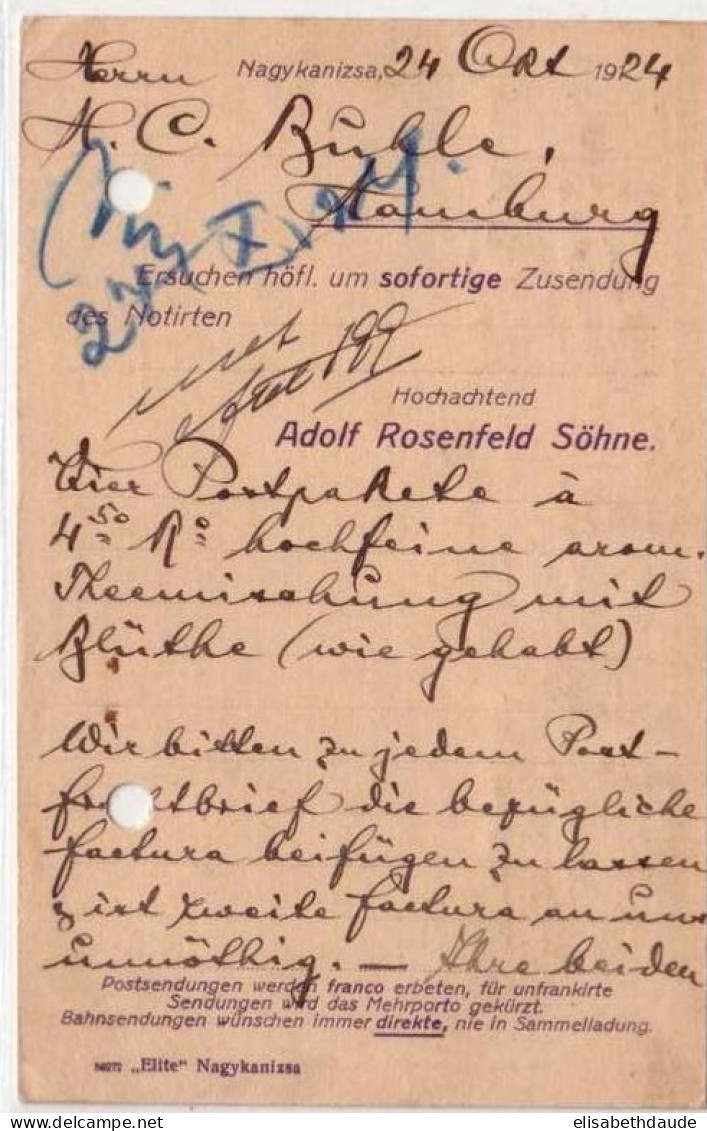 Herrn Nagykanizsa, 24 Okt 1924
H. C. Bühle,
Hamburg
Ersuchen höfl. um sofortige Zusendung
des Notirten
Hochachtend
Adolf Rosenfeld Söhne.
Vier Postpakete à
4 50 Ko hochfeine arom.
Theemischung mit
Blüthe (wie gehabt)
Wir bitten zu jedem Post-
frachtbrief die bezügliche
factura beifügen zu lassen
ist zweite factura an uns
unnöthig. — Ihre beiden
Postsendungen werden franco erbeten, für unfrankirte
Sendungen wird das Mehrporto gekürzt.
Bahnsendungen wünschen immer direkte, nie in Sammelladung.
„Elite“ Nagykanizsa
elisabethdaude